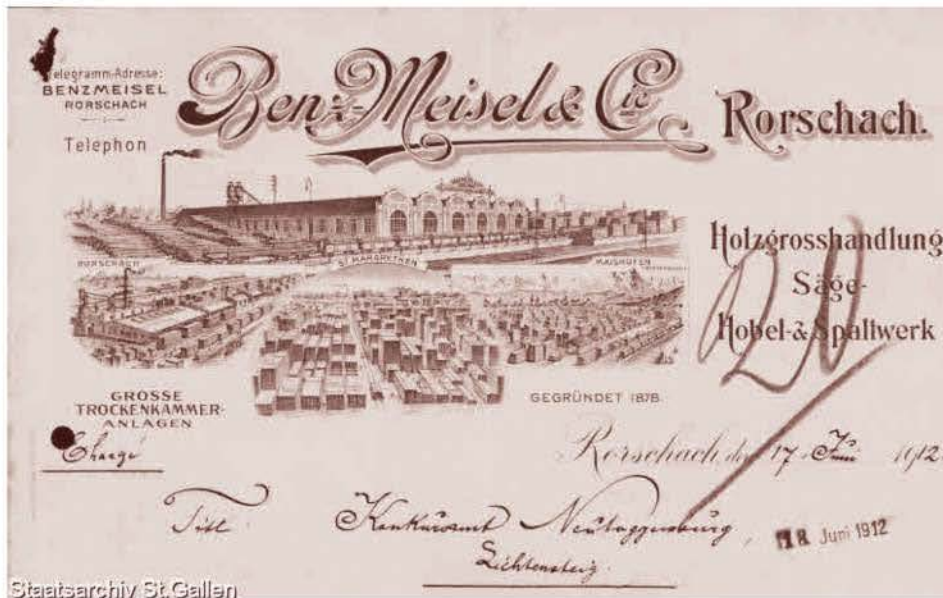 Telegramm-Adresse:
BENZMEISEL
RORSCHACH
Telephon
Benz-Meisel & Cie Rorschach.
RORSCHACH
ST. MARGRETHEN
MAISHOFEN
Holzgrosshandlung
Säge-
Hobel-& Spaltwerk
20
GROSSE
TROCKENKAMMER-
ANLAGEN
GEGRÜNDET 1878.
Chargé
Rorschach, den 17. Juni 1912
Titl. Konkursamt Neutoggenburg,
Lichtensteig.
18. Juni 1912
Staatsarchiv St.Gallen